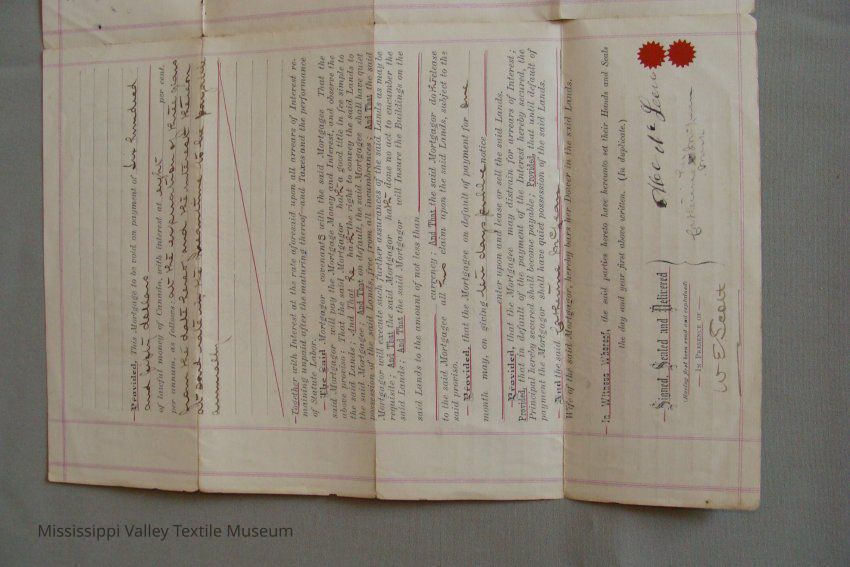 Provided, This Mortgage to be void on payment of Six hundred
and eight dollars
of lawful money of Canada, with interest at eight per cent.
per annum as follows: at the expiration of five years
from the date hereof and the interest thereon
at said rate to be payable
annually
Together with Interest at the rate aforesaid upon all arrears of Interest re-
maining unpaid after the maturing thereof—and Taxes and the performance
of Statute Labor.
The Said Mortgagor covenants with the said Mortgagee That the
said Mortgagor will pay the Mortgage Money and Interest, and observe the
above proviso; That the said Mortgagor hath a good title in fee simple to
the said Lands; And That he hath the right to convey the said Lands to
the said Mortgagee; And That on default, the said Mortgagee shall have quiet
possession of the said Lands, free from all incumbrances; And That the said
Mortgagor will execute such further assurances of the said Lands as may be
requisite; And That the said Mortgagor hath done no act to encumber the
said Lands; And That the said Mortgagor will Insure the Buildings on the
said Lands to the amount of not less than
currency; And That the said Mortgagor doth release
to the said Mortgagee all his claim upon the said Lands, subject to the
said proviso.
Provided, that the Mortgagee on default of payment for one
month may, on giving ten days public notice
enter upon and lease or sell the said Lands.
Provided, that the Mortgagee may distrain for arrears of Interest;
Provided, that in default of the payment of the Interest hereby secured, the
Principal hereby secured shall become payable; Provided, that until default of
payment the Mortgagor shall have quiet possession of the said Lands.
And the said Catherine McLean
Wife of the said Mortgagor, hereby bars her Dower in the said Lands.
In Witness Whereof, the said parties hereto have hereunto set their Hands and Seals
the day and year first above written. (In duplicate.)
Signed, Sealed and Delivered
IN PRESENCE OF
W E Scott
Mississippi Valley Textile Museum